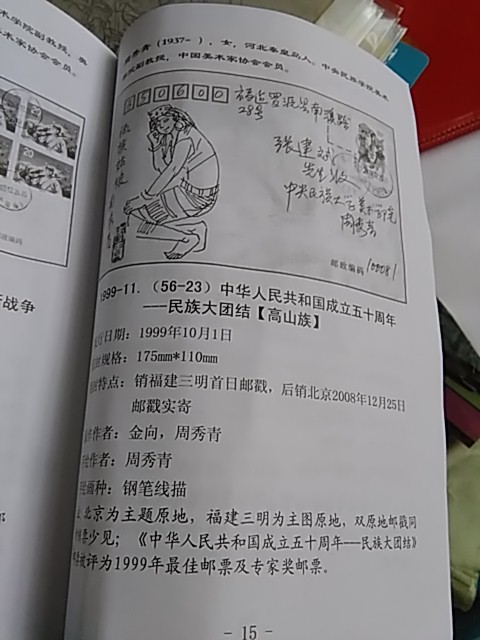 术学院副教授，
协会会员。
秀青（1937- ），女，河北秦皇岛人。中央民族学院美术
副教授，中国美术家协会会员。
350600
28号
张建
先生收
中央民族大学美术学院
周秀青
邮政编码 100081
战争
1999-11.（56-23）中华人民共和国成立五十周年
——民族大团结【高山族】
行日期：1999年10月1日
规格：175mm*110mm
特点：销福建三明首日邮戳，后销北京2008年12月25日
邮戳实寄
作者：金向，周秀青
作者：周秀青
画种：钢笔线描
北京为主题原地，福建三明为主图原地，双原地邮戳同
少见；《中华人民共和国成立五十周年---民族大团结》
被评为1999年最佳邮票及专家奖邮票。
- 15 -